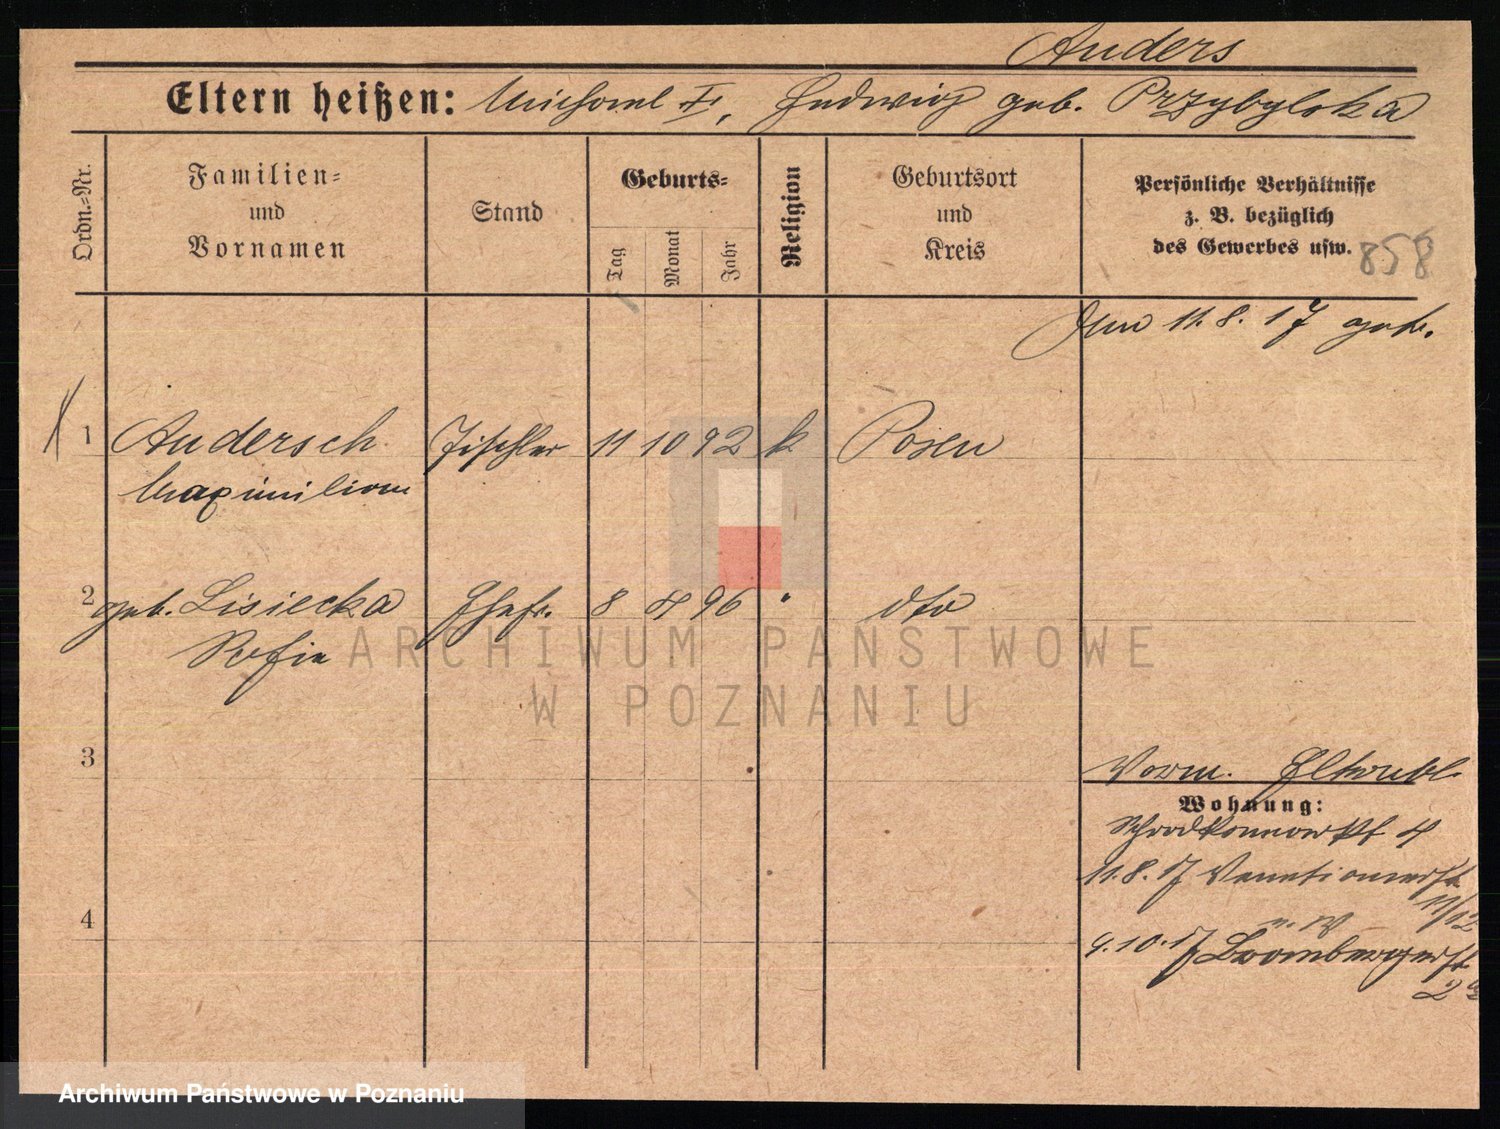 Anders
Eltern heißen: Michael †, Hedwig geb. Przybylska
Ordn.=Nr.
Familien=
und
Vornamen
Stand
Geburts=
Tag
Monat
Jahr
Religion
Geburtsort
und
Kreis
Persönliche Verhältnisse
z. B. bezüglich
des Gewerbes usw.
858
Am 11.8.17 getr.
1 Andersch Tischler 11 10 92 k. Posen
Maximilian
2 geb. Lisiecka Ehefr. 8 5 96 " dto
Sofie
ARCHIWUM PAŃSTWOWE
W POZNANIU
3
Vorm.
Wohnung:
11.8.17 Venetianerst.
11/12
9.10.17 Brombergerst.
2a
4
Archiwum Państwowe w Poznaniu